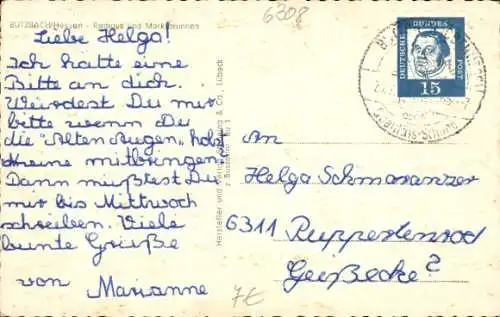 BUTZBACH/Hessen - Rathaus und Marktbrunnen
6308
Liebe Helga!
Ich hätte eine
Bitte an dich.
Würdest Du mir
bitte wenn Du
die "Alten Augen" holst
keine mitbringen
Dann müßtest Du
mir bis Mittwoch
schreiben. Viele
bunte Grüße
von Marianne
Hersteller und Verlag & Co., Lübeck
DEUTSCHE BUNDES POST
15
An
Helga Schmaranzer
6311 Ruppertenrod
Geißecke 2
7€